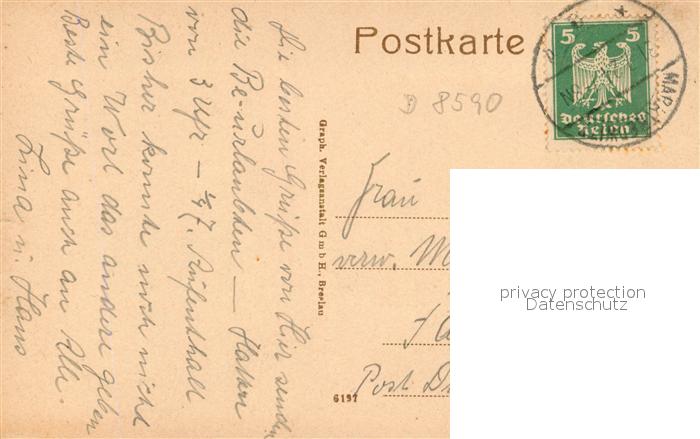 Postkarte
5 5
Deutsches
Reich
D 8590
Die besten Grüße von Hier senden
die Be-urlaubten —
von 3 Uhr — ½7.
Bisher konnte noch nicht
ein Wort das andere geben
Beste Grüße auch an Alle.
Lina u. Hans
Graph. Verlagsanstalt G m b H., Breslau
6197
Frau
verw. M
Post
privacy protection
Datenschutz